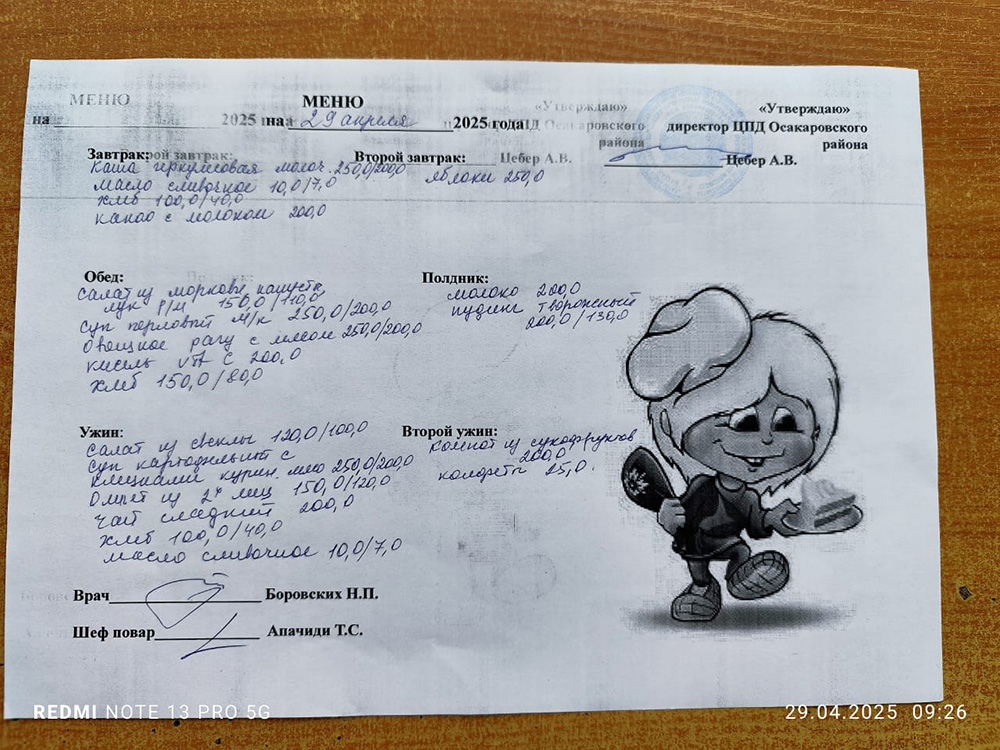 МЕНЮ
МЕНЮ
«Утверждаю»
«Утверждаю»
на
2025
на 29 апреля 2025 года
ЦПД Осакаровского
района
директор ЦПД Осакаровского
района
Цебер А.В.
Цебер А.В.
Завтрак:
Каша геркулесовая молоч. 250,0/200,0
Масло сливочное 10,0/7,0
хлеб 100,0/40,0
какао с молоком 200,0
Второй завтрак:
яблоки 250,0
Обед:
Салат из моркови, капусты,
лук р/м 150,0/110,0
Суп перловый м/к 250,0/200,0
Овощное рагу с мясом 250,0/200,0
кисель vit C 200,0
хлеб 150,0/80,0
Полдник:
молоко 200,0
пудинг творожный
200,0/130,0
Ужин:
Салат из свеклы 120,0/100,0
Суп картофельный с
клецками курин. мяс 250,0/200,0
Омлет из 2х яиц 150,0/120,0
чай сладкий 200,0
хлеб 100,0/40,0
масло сливочное 10,0/7,0
Второй ужин:
Компот из сухофруктов
200,0
конфеты 25,0.
Врач Боровских Н.П.
Шеф повар Апачиди Т.С.
REDMI NOTE 13 PRO 5G
29.04.2025 09:26